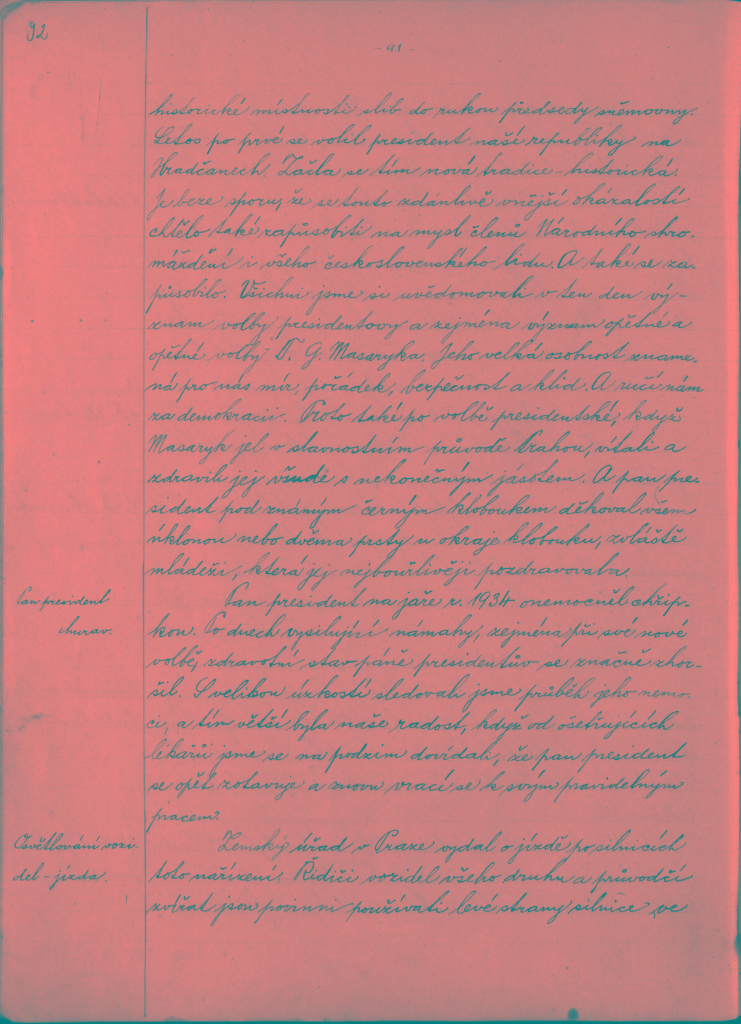 92
- 91 -
historické místnosti slib do rukou předsedy sněmovny.
Letos po prvé se volil president naší republiky na
Hradčanech. Začla se tím nová tradice - historická.
Je beze sporu, že se touto zdánlivě vnější okázalostí
chtělo také zapůsobiti na mysl členů Národního shro-
máždění i všeho československého lidu. A také se za-
působilo. Všichni jsme si uvědomovali v ten den vý-
znam volby presidentovy a zejména význam opětné a
opětné volby T. G. Masaryka. Jeho velká osobnost zname-
ná pro nás mír, pořádek, bezpečnost a klid. A ručí nám
za demokracii. Proto také po volbě presidentské, když
Masaryk jel v slavnostním průvodě Prahou, vítali a
zdravili jej všude s nekonečným jásotem. A pan pre-
sident pod známým černým kloboukem děkoval všem
úklonou nebo dvěma prsty u okraje klobouku, zvláště
mládeži, která jej nejbouřlivěji pozdravovala.
Pan president
churav.
Pan president na jaře r. 1934 onemocněl chřip-
kou. Po dnech vysilující námahy, zejména při své nové
volbě, zdravotní stav páně presidentův se značně zhor-
šil. S velikou úzkostí sledovali jsme průběh jeho nemo-
ci, a tím větší byla naše radost, když od ošetřujících
lékařů jsme se na podzim dovídali, že pan president
se opět zotavuje a znovu vrací se k svým pravidelným
pracem.
Osvětlování vozi-
del - jízda.
Zemský úřad v Praze vydal o jízdě po silnicích
toto nařízení. Řidiči vozidel všeho druhu a průvodčí
zvířat jsou povinni používati levé strany silnice ve